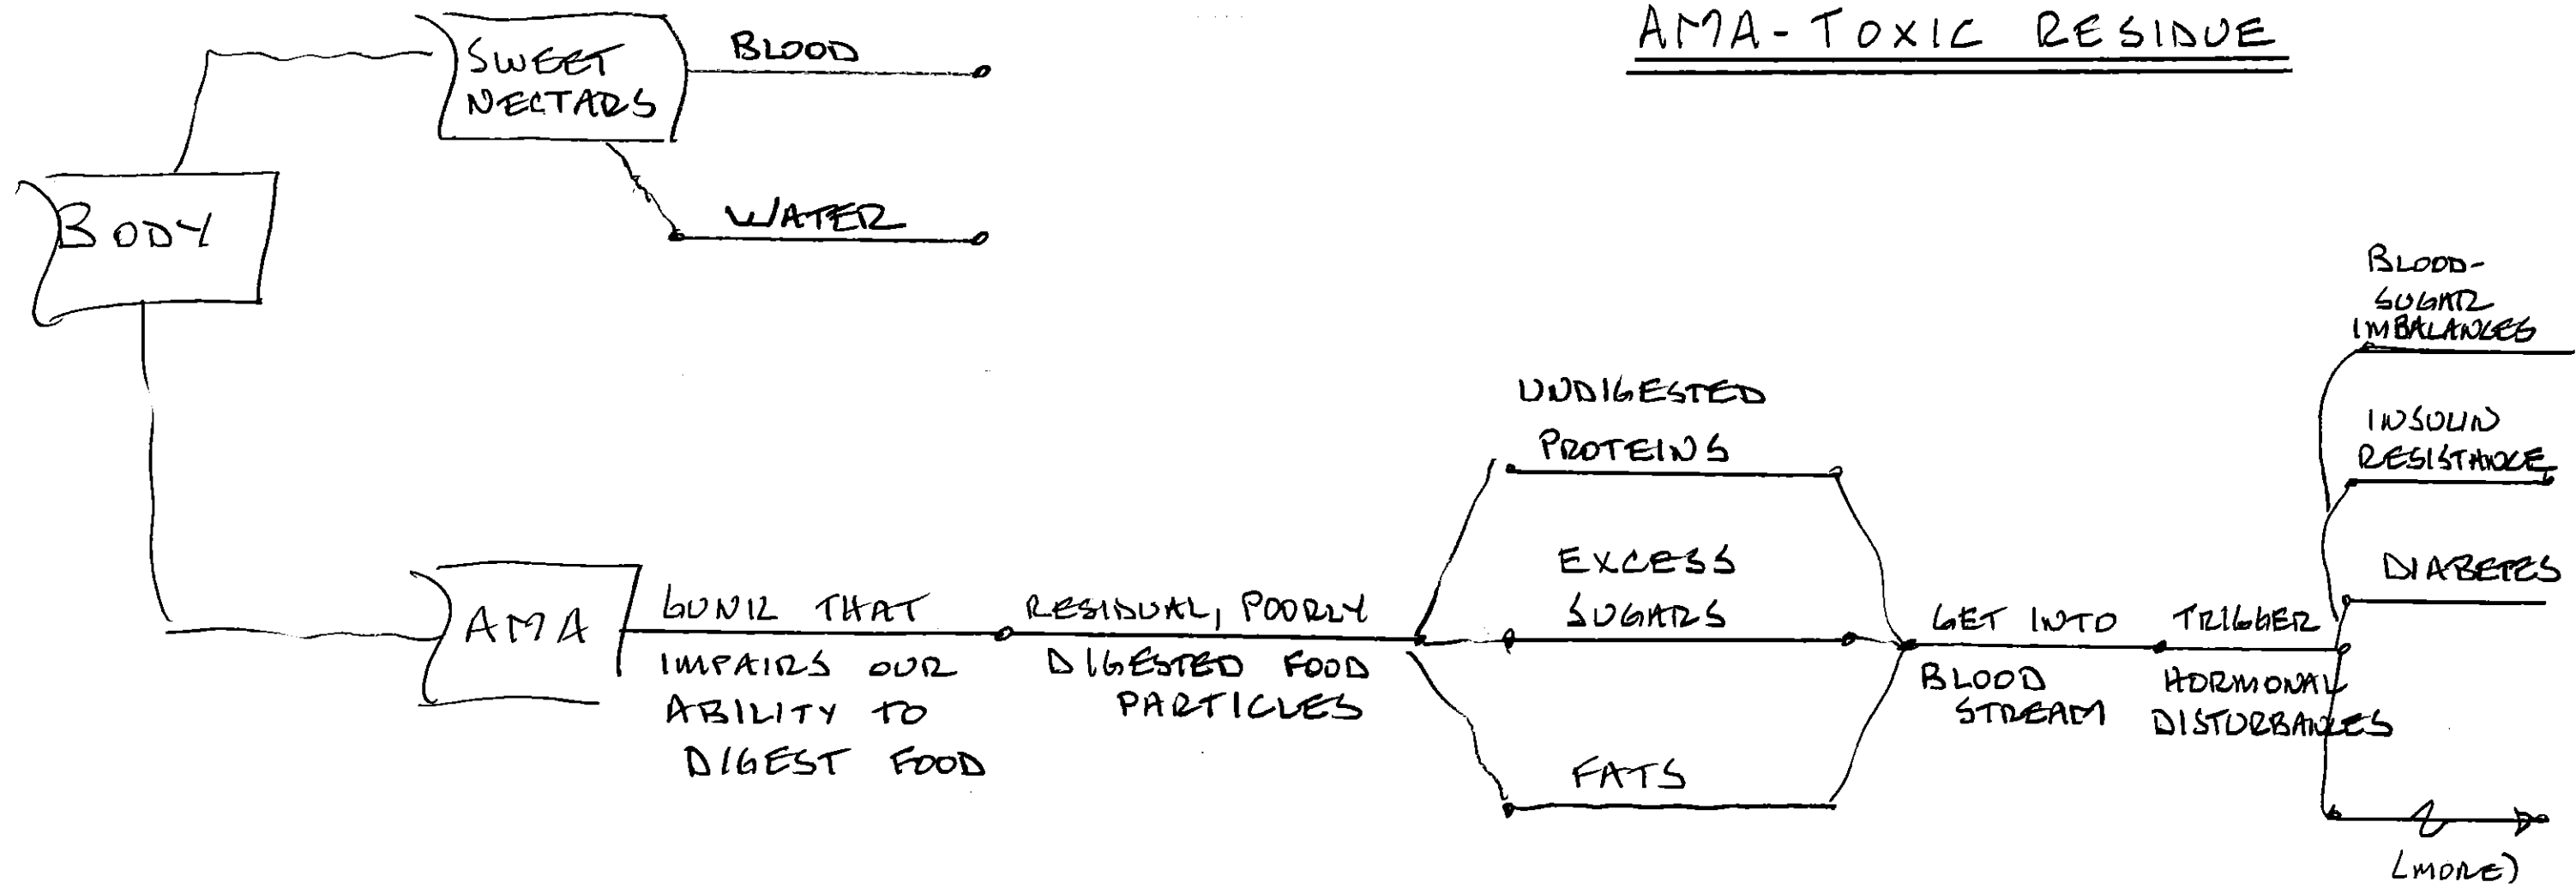 AMA-TOXIC RESIDUE
SWEET
NECTARS
BLOOD
WATER
BODY
AMA
GUNK THAT
IMPAIRS OUR
ABILITY TO
DIGEST FOOD
RESIDUAL, POORLY
DIGESTED FOOD
PARTICLES
UNDIGESTED
PROTEINS
EXCESS
SUGARS
FATS
GET INTO
BLOOD
STREAM
TRIGGER
HORMONAL
DISTURBANCES
BLOOD-
SUGAR
IMBALANCES
INSULIN
RESISTANCE
DIABETES
(MORE)